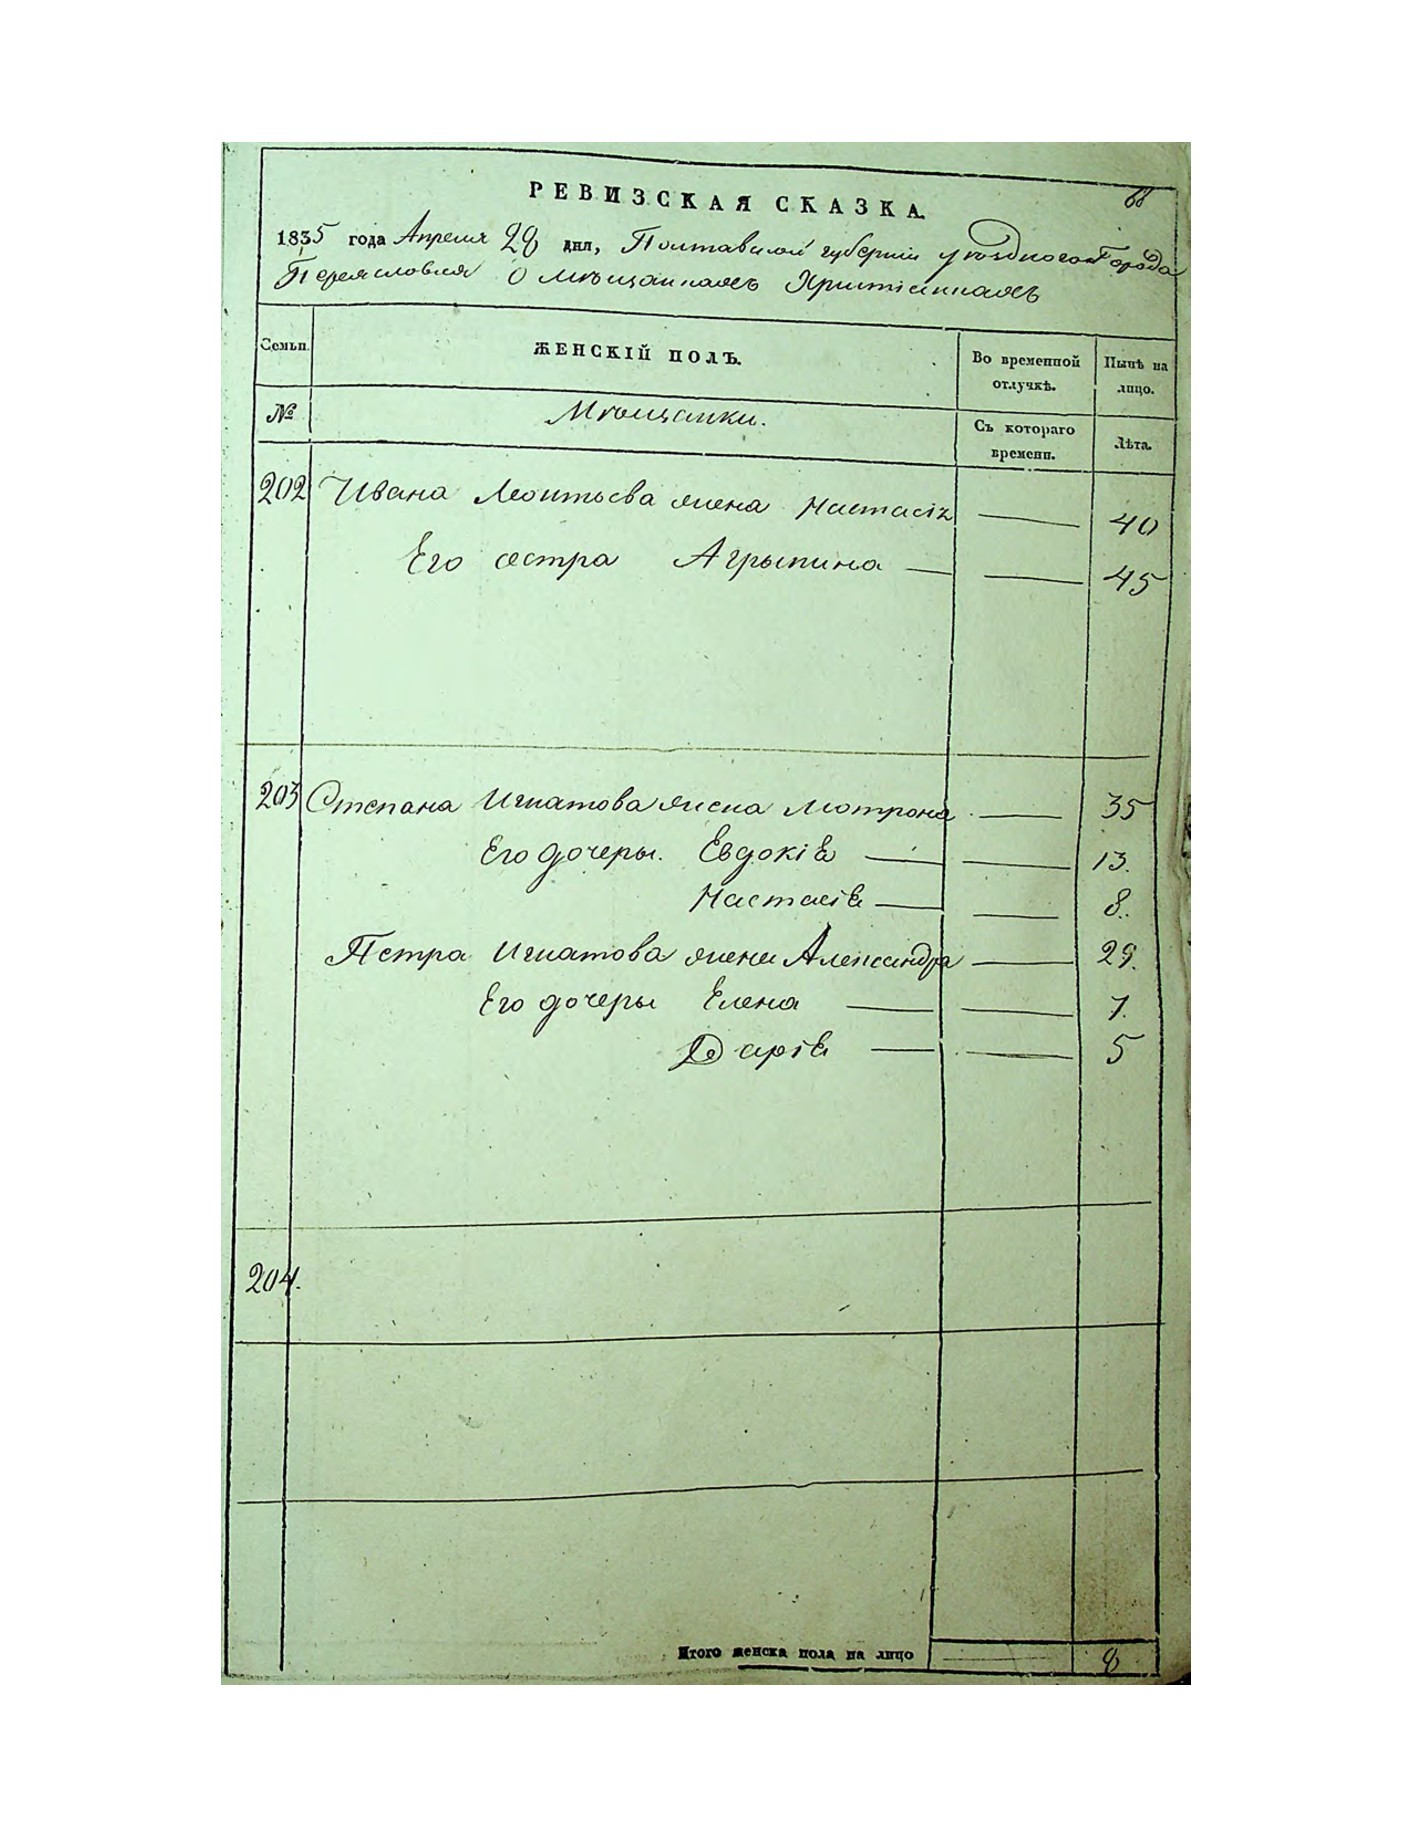 68
РЕВИЗСКАЯ СКАЗКА.
1835 года Апреля 28 дня, Полтавской губернии уѣзднаго Города
Переяславля О мѣщанахъ Христіянахъ
Семьи. ЖЕНСКІЙ ПОЛЪ. Во временной отлучкѣ. Нынѣ на лицо.
№ Мѣщанки. Съ котораго времени. Лѣта.
202 Ивана Леонтьева жена Настасія — 40
Его сестра Агрыпина — — 45
203 Степана Игнатова жена Мотрона — 35
Его дочеры. Евдокія — — 13.
Настасія — — 8.
Петра Игнатова жена Александра — 29.
Его дочеры Елена — — 7.
Дарія — — 5
204.
Итого женска пола на лицо — 8